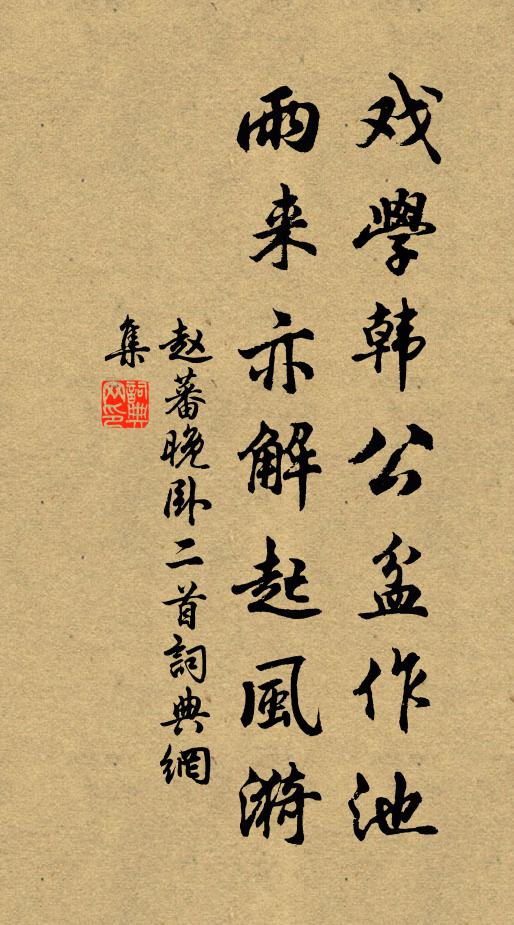 戏學韩公盆作池
雨来亦解起風漪
赵蕃晚卧二首詞典網
集
詞典
网印